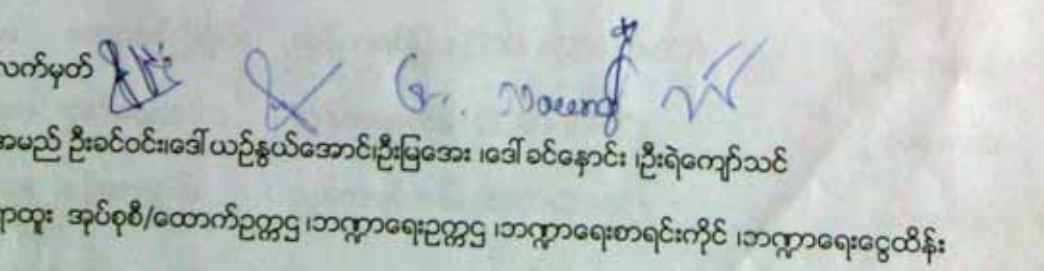 လက်မှတ်
အမည် ဦးခင်ဝင်း၊ဒေါ်ယဉ်နွယ်အောင်၊ဦးမြအေး ၊ဒေါ်ခင်နှောင်း ၊ဦးရဲကျော်သင်
ရာထူး အုပ်စုစီ/ထောက်ဥက္ကဌ ၊ဘဏ္ဍာရေးဥက္ကဌ ၊ဘဏ္ဍာရေးစာရင်းကိုင် ၊ဘဏ္ဍာရေးငွေထိန်း